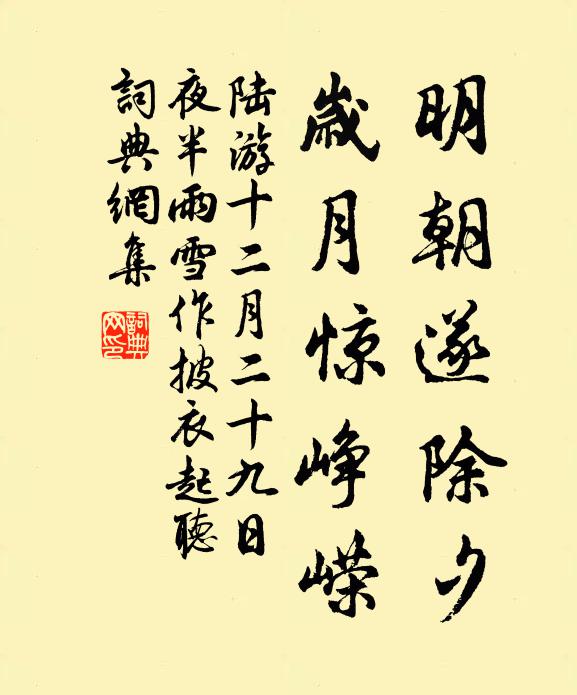 明朝遂除夕
歲月惊峥嵘
陆游十二月二十九日
夜半雨雪作披衣起聽
詞典網集
詞典
网印